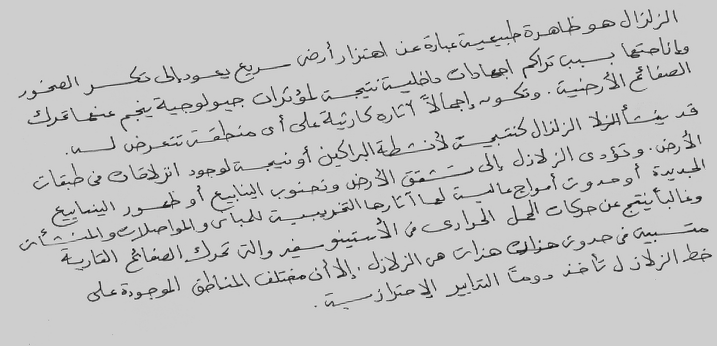 الزلزال هو ظاهرة طبيعية عبارة عن اهتزاز أرضي سريع يعود إلى تكسر الصخور
وإزاحتها بسبب تراكم اجهادات داخلية نتيجة لمؤثرات جيولوجية ينجم عنها تحرك
الصفائح الأرضية. وتكون إجمالاً آثاره كارثية على أي منطقة تتعرض له.
قد ينشأ الزلزال كنتيجة لأنشطة البراكين أو نتيجة لوجود انزلاقات في طبقات
الأرض. وتؤدي الزلازل إلى تشقق الأرض ونضوب الينابيع أو ظهور الينابيع
الجديدة أو حدوث أمواج عالية لها آثارها التخريبية للمباني والمواصلات والمنشآت
وغالباً ينتج عن حركات الحمل الحراري في الأستينوسفير والتي تحرك الصفائح القارية
متسببة في حدوث هزات هي الزلازل، إلا أن مختلف المناطق الموجودة على
خط الزلازل تأخذ دوماً التدابير الإحترازية.